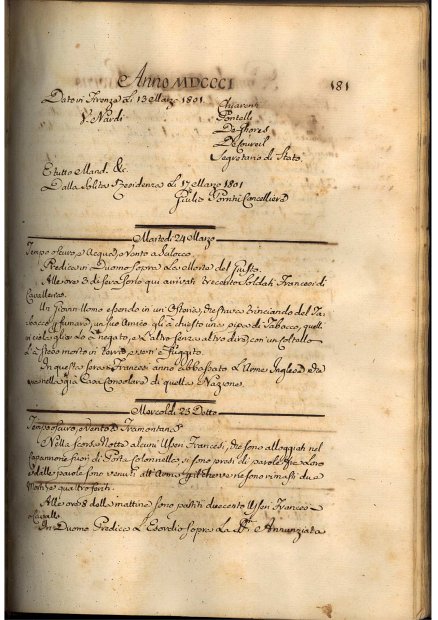 Anno MDCCCI
181
Dato in Firenze Li 13 Marzo 1801
Chiarenti
V. Nardi
Pontelli
De Ghores
Segretario di Stato
E tutto Mand. &c.
Dalla Solita Residenza Li 17 Marzo 1801
Giulio Cancelliere
Martedì 24 Marzo
Tempo oscuro, e Acqua, e vento a Scilocco.
Predica in Duomo sopra La Morte del Giusto.
Alle ore 3 di sera sono qui arrivati trecento Soldati Francesi di
Cavalleria.
Un Giovin Uomo essendo in un'Osteria, che stava trinciando del Ta-
bacco p. fumare, un suo Amico gli à chiesto una pipa di Tabacco, quell
gliel'à negato, e L'altro senza altro dire con un coltello
L'à steso morto in terra, e si è fuggito.
In questa sera i Francesi anno abbassato L'Arme Inglese che
Console di quella Nazione.
Mercoledì 25 Detto
Tempo oscuro, e vento a Tramontana
Nella scorsa Notte alcuni Usseri Francesi, che sono alloggiati nel
Capannone fuori di Porta Colonnella, si sono presi di parole fra Loro
e dalle parole sono venuti all'Arme, ne sono rimasti due
Morti e quattro feriti.
Alle ore 8 della mattina sono partiti duecento Usseri Francesi
a Cavallo.
In Duomo Predica L'Esordio sopra La SS. Annunziata